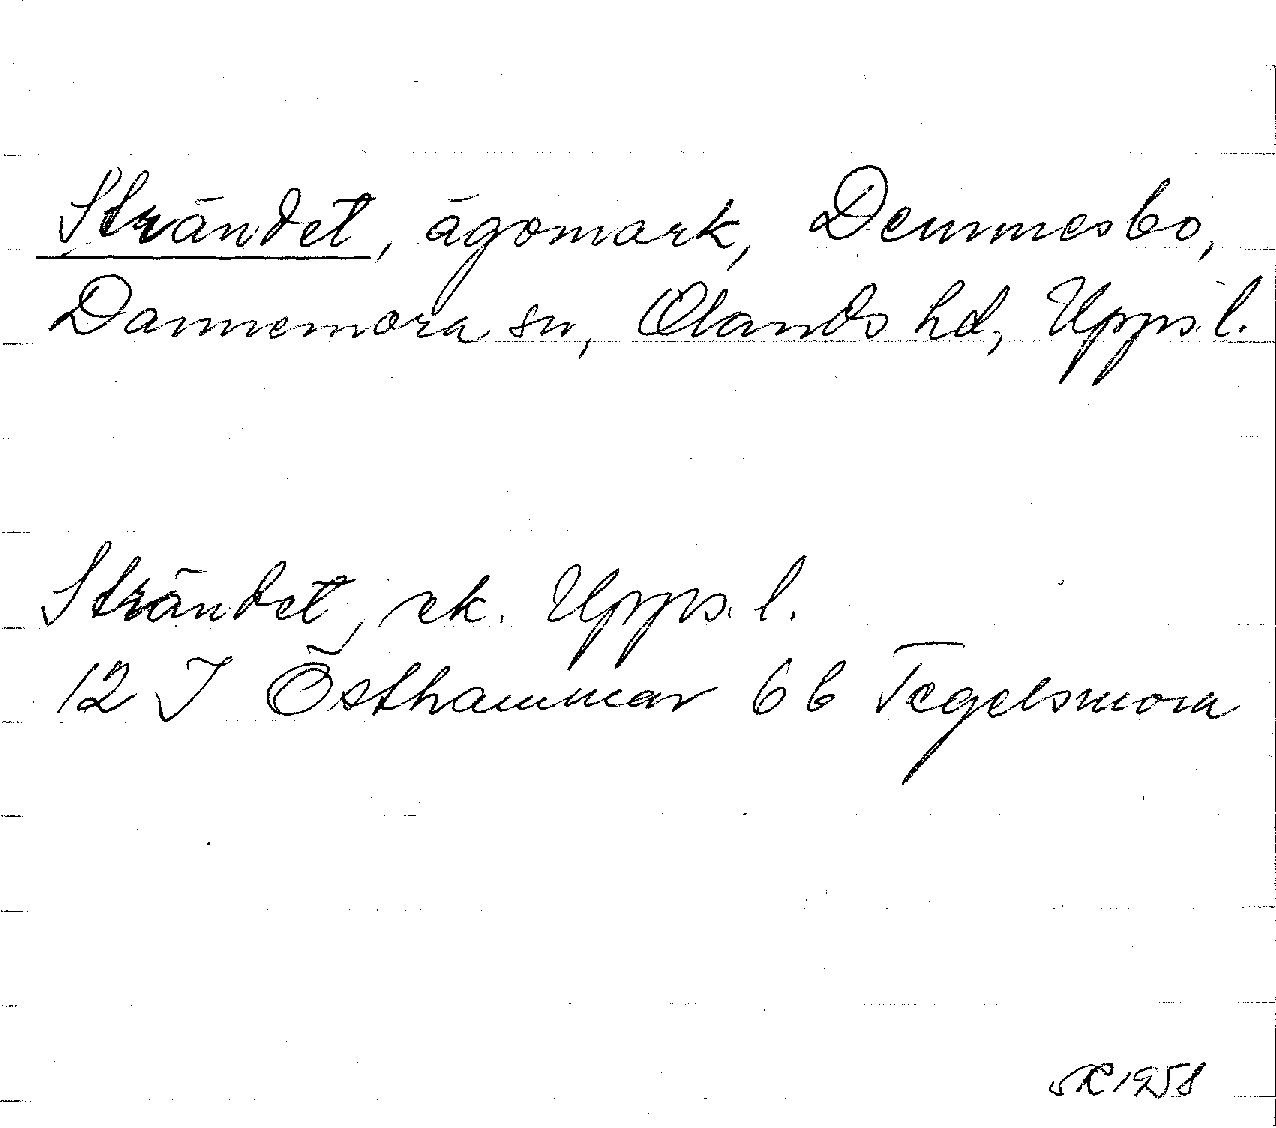 Strändet, ägomark, Demmesbo,
Dannemora sn, Olands hd, Upps. l.
Strändet, ek. Upps. l.
12 I Östhammar 6 b Tegelsmora
1958